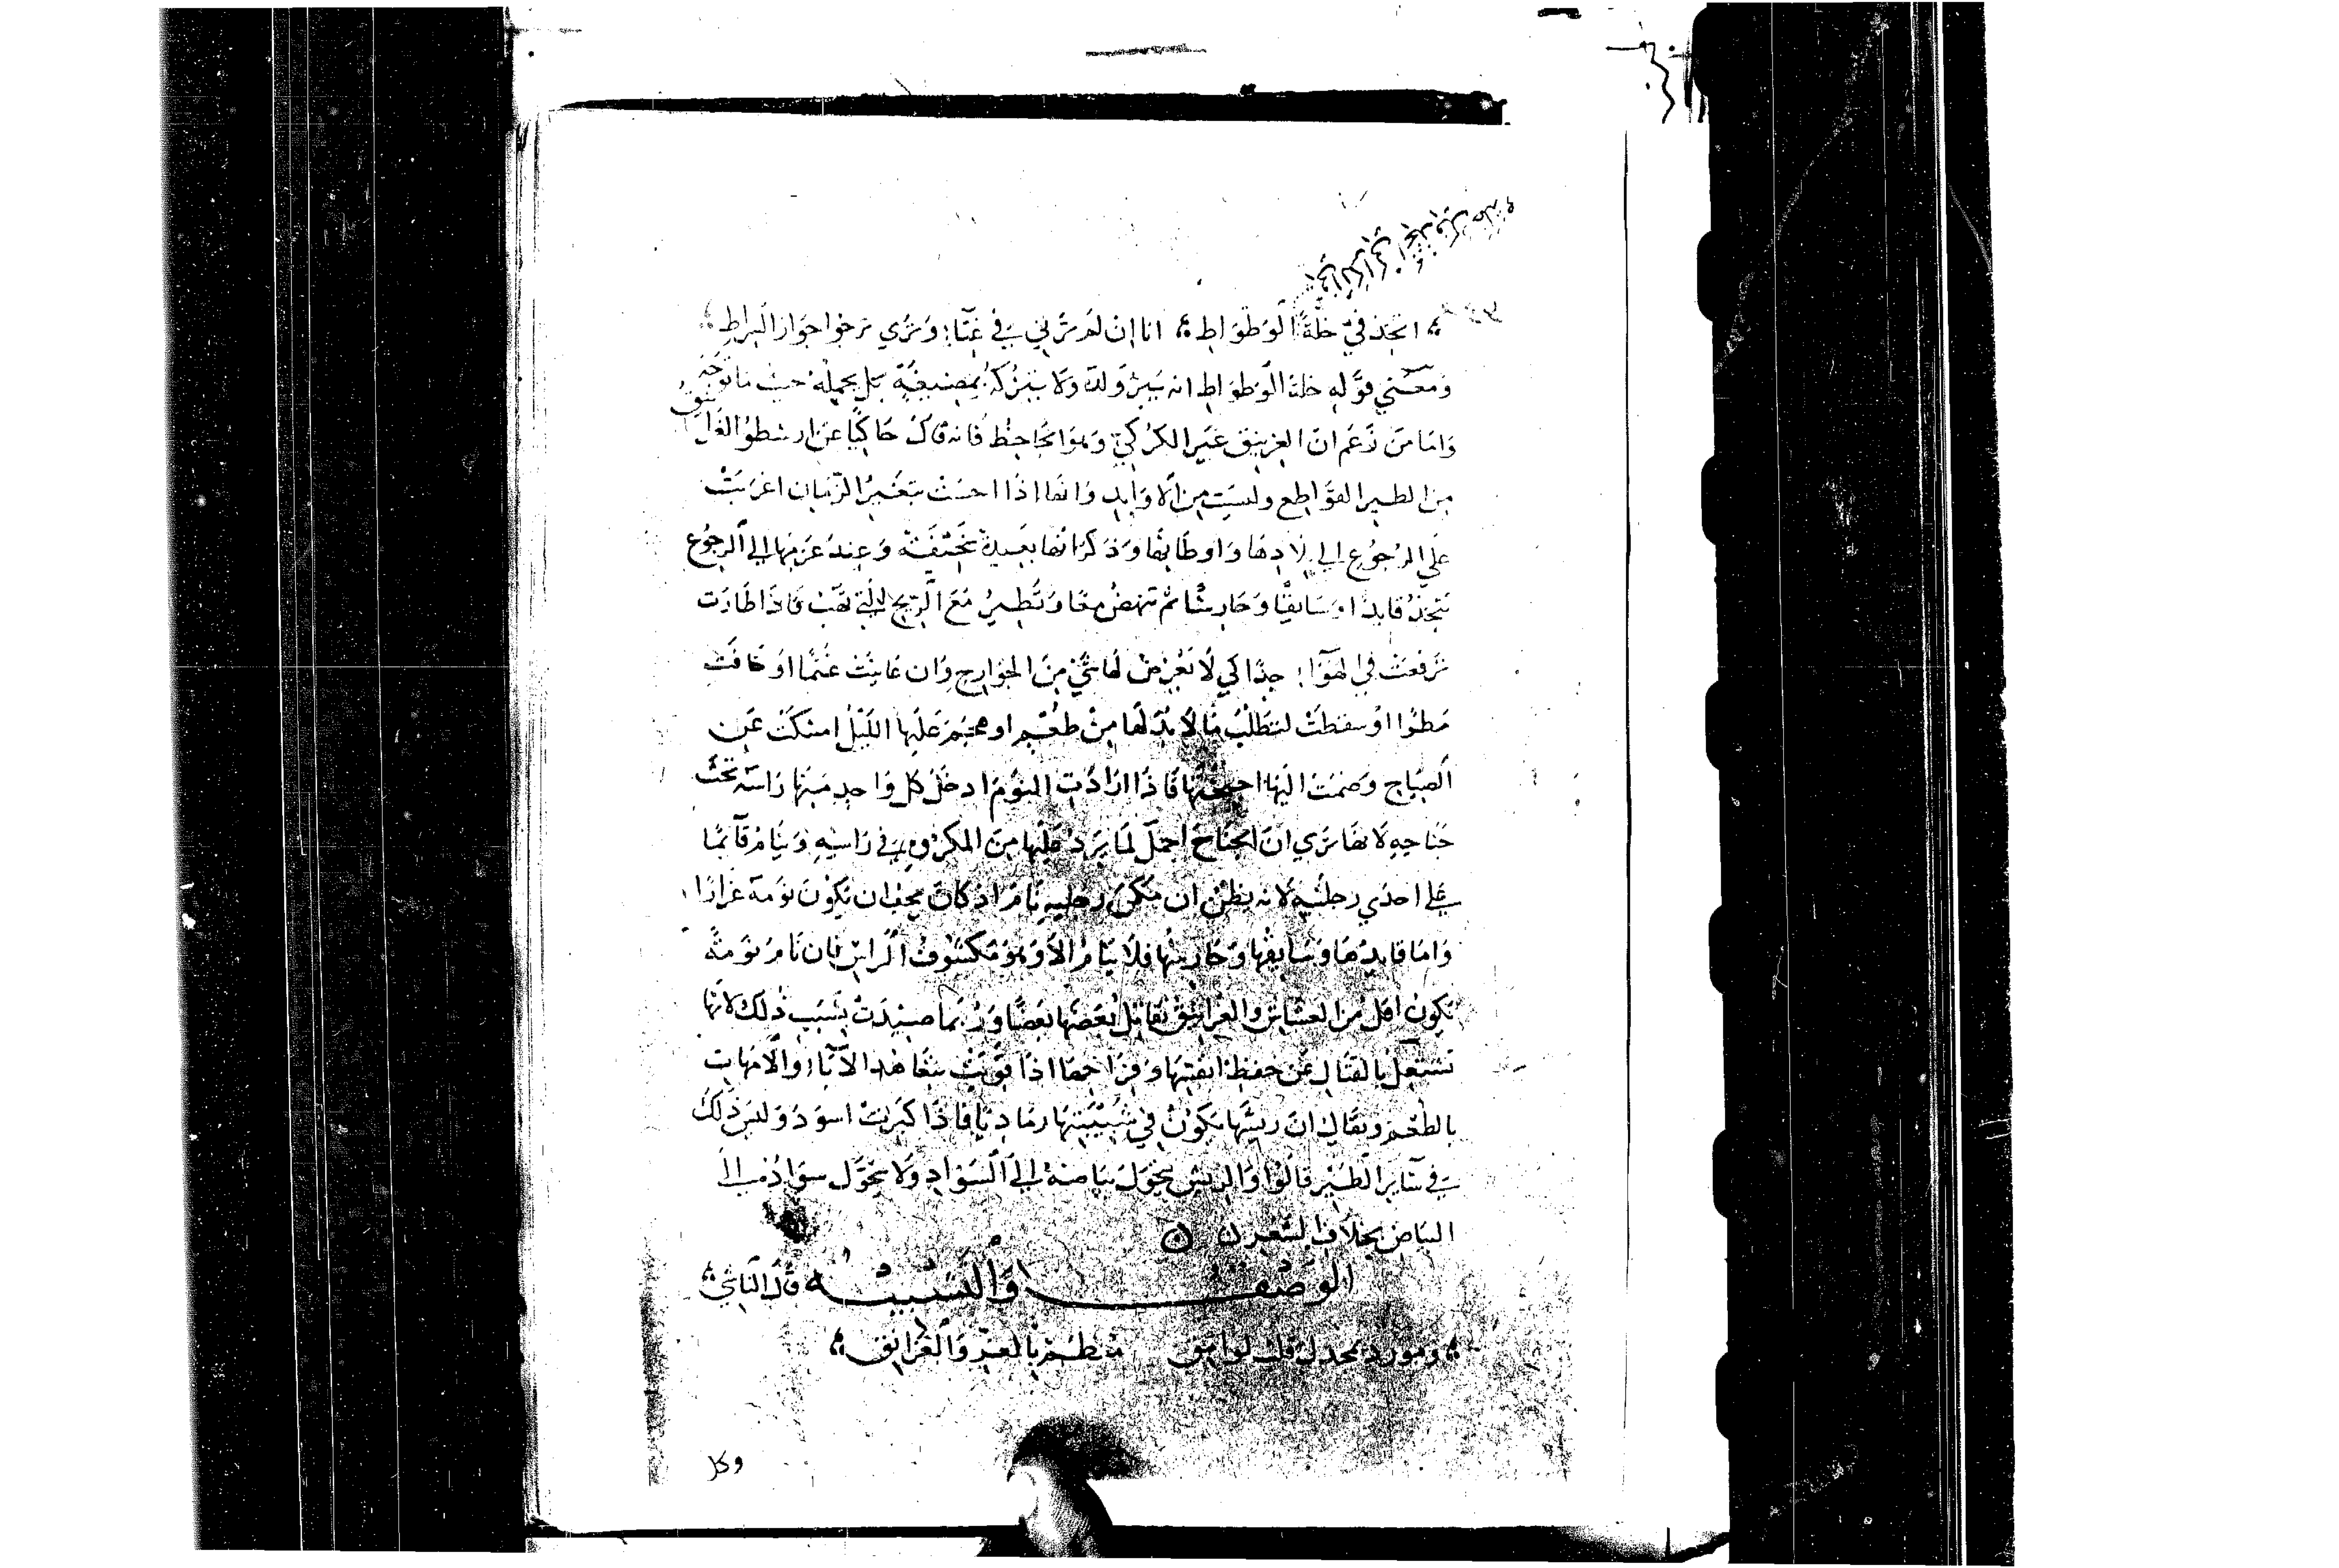 اتخذ فيّ خلة الوطواط انا ان لم ترني في غنآء وتري ترجوا جواز الصراط
ومعني قوله خلة الوطواط انه يبر ولده ولا يتركه بمضيعة بل يحمله حيث ما توجه
واما من زعم ان الغرنيق غير الكركي وهو الجاحظ فانه قال حاكيا عن ارسطو الغرانيق
من الطير القواطع وليست من الاوابد وانها اذا احست بتغير الزمان اعزمت
علي الرجوع الي بلادها واوطانها وذكر انها بعيدة سحيقة وعند عزمها الي الرجوع
تتخذ قايدا وسايقا وحارسا ثم تنهض معا وتطير مع الريح التي تهب فاذا طارت
ترفعت في الهوآء جدا كي لا تعرض لها شي من الجوارح وان عاينت غيما او خافت
مطرا او سقطت لتطلب ما لا بد لها من طعم او هجم عليها الليل امسكت عن
الصياح وضمت اليها اجنحتها فاذا ارادت النوم ادخل كل واحد منها راسه تحت
جناحه لانها تري ان الجناح احمل لما يرد عليها من المكروه في راسه وينام قآئما
علي احدي رجليه لانه يظن ان مكن رجليه نام اذ كان يجب ان يكون نومه غرارا
واما قايدها وسايقها وحارسها فلا ينام الا وهو مكشوف الراس فان نام نومة
تكون اقل من الغشاش والغرانيق تقاتل بعضها بعضا وربما صيدت بسبب ذلك لانها
تشتغل بالقتال عن حفظ انفسها وفراخها اذا قويت تتعاهد الآبآء والامهات
بالطعم ويقال ان ريشها يكون في شبيبتها رماديا فاذا كبرت اسود وليس ذلك
في سآير الطير قالوا والريش يتحول بياضه الي السواد ولا يتحول سواده الي
البياض بخلاف الشعر
الوصف والتشبيه قال الناشي
ومورد يجذل قلب الوامق منطم بالغر والغرانق
وكل